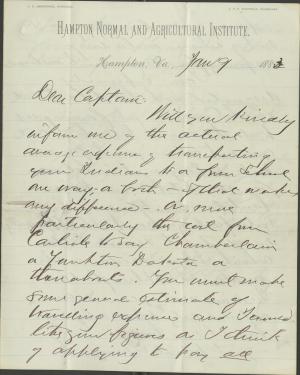 HAMPTON NORMAL AND AGRICULTURAL INSTITUTE.
Hampton, Va., Jan 9 188
Dear Captain:
Will you kindly
inform me of the actual
average expense of transporting
your Indians to & from School
one way & both -
any difference - or, more
particularly the cost from
Carlisle to say Chamberlain
or Yankton Dakota or
thereabouts. You must make
some general estimate of
travelling expenses and I would
like your figures as I think
of applying to pay all